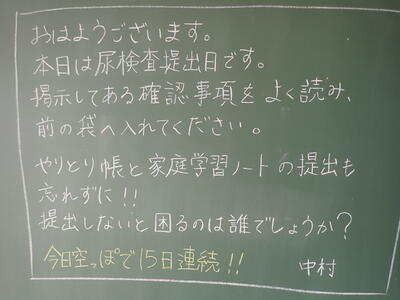 おはようございます。
本日は尿検査提出日です。
掲示してある確認事項をよく読み、
前の袋へ入れてください。
やりとり帳と家庭学習ノートの提出も
忘れずに!!
提出しないと困るのは誰でしょうか?
今日空っぽで15日連続!!
中村